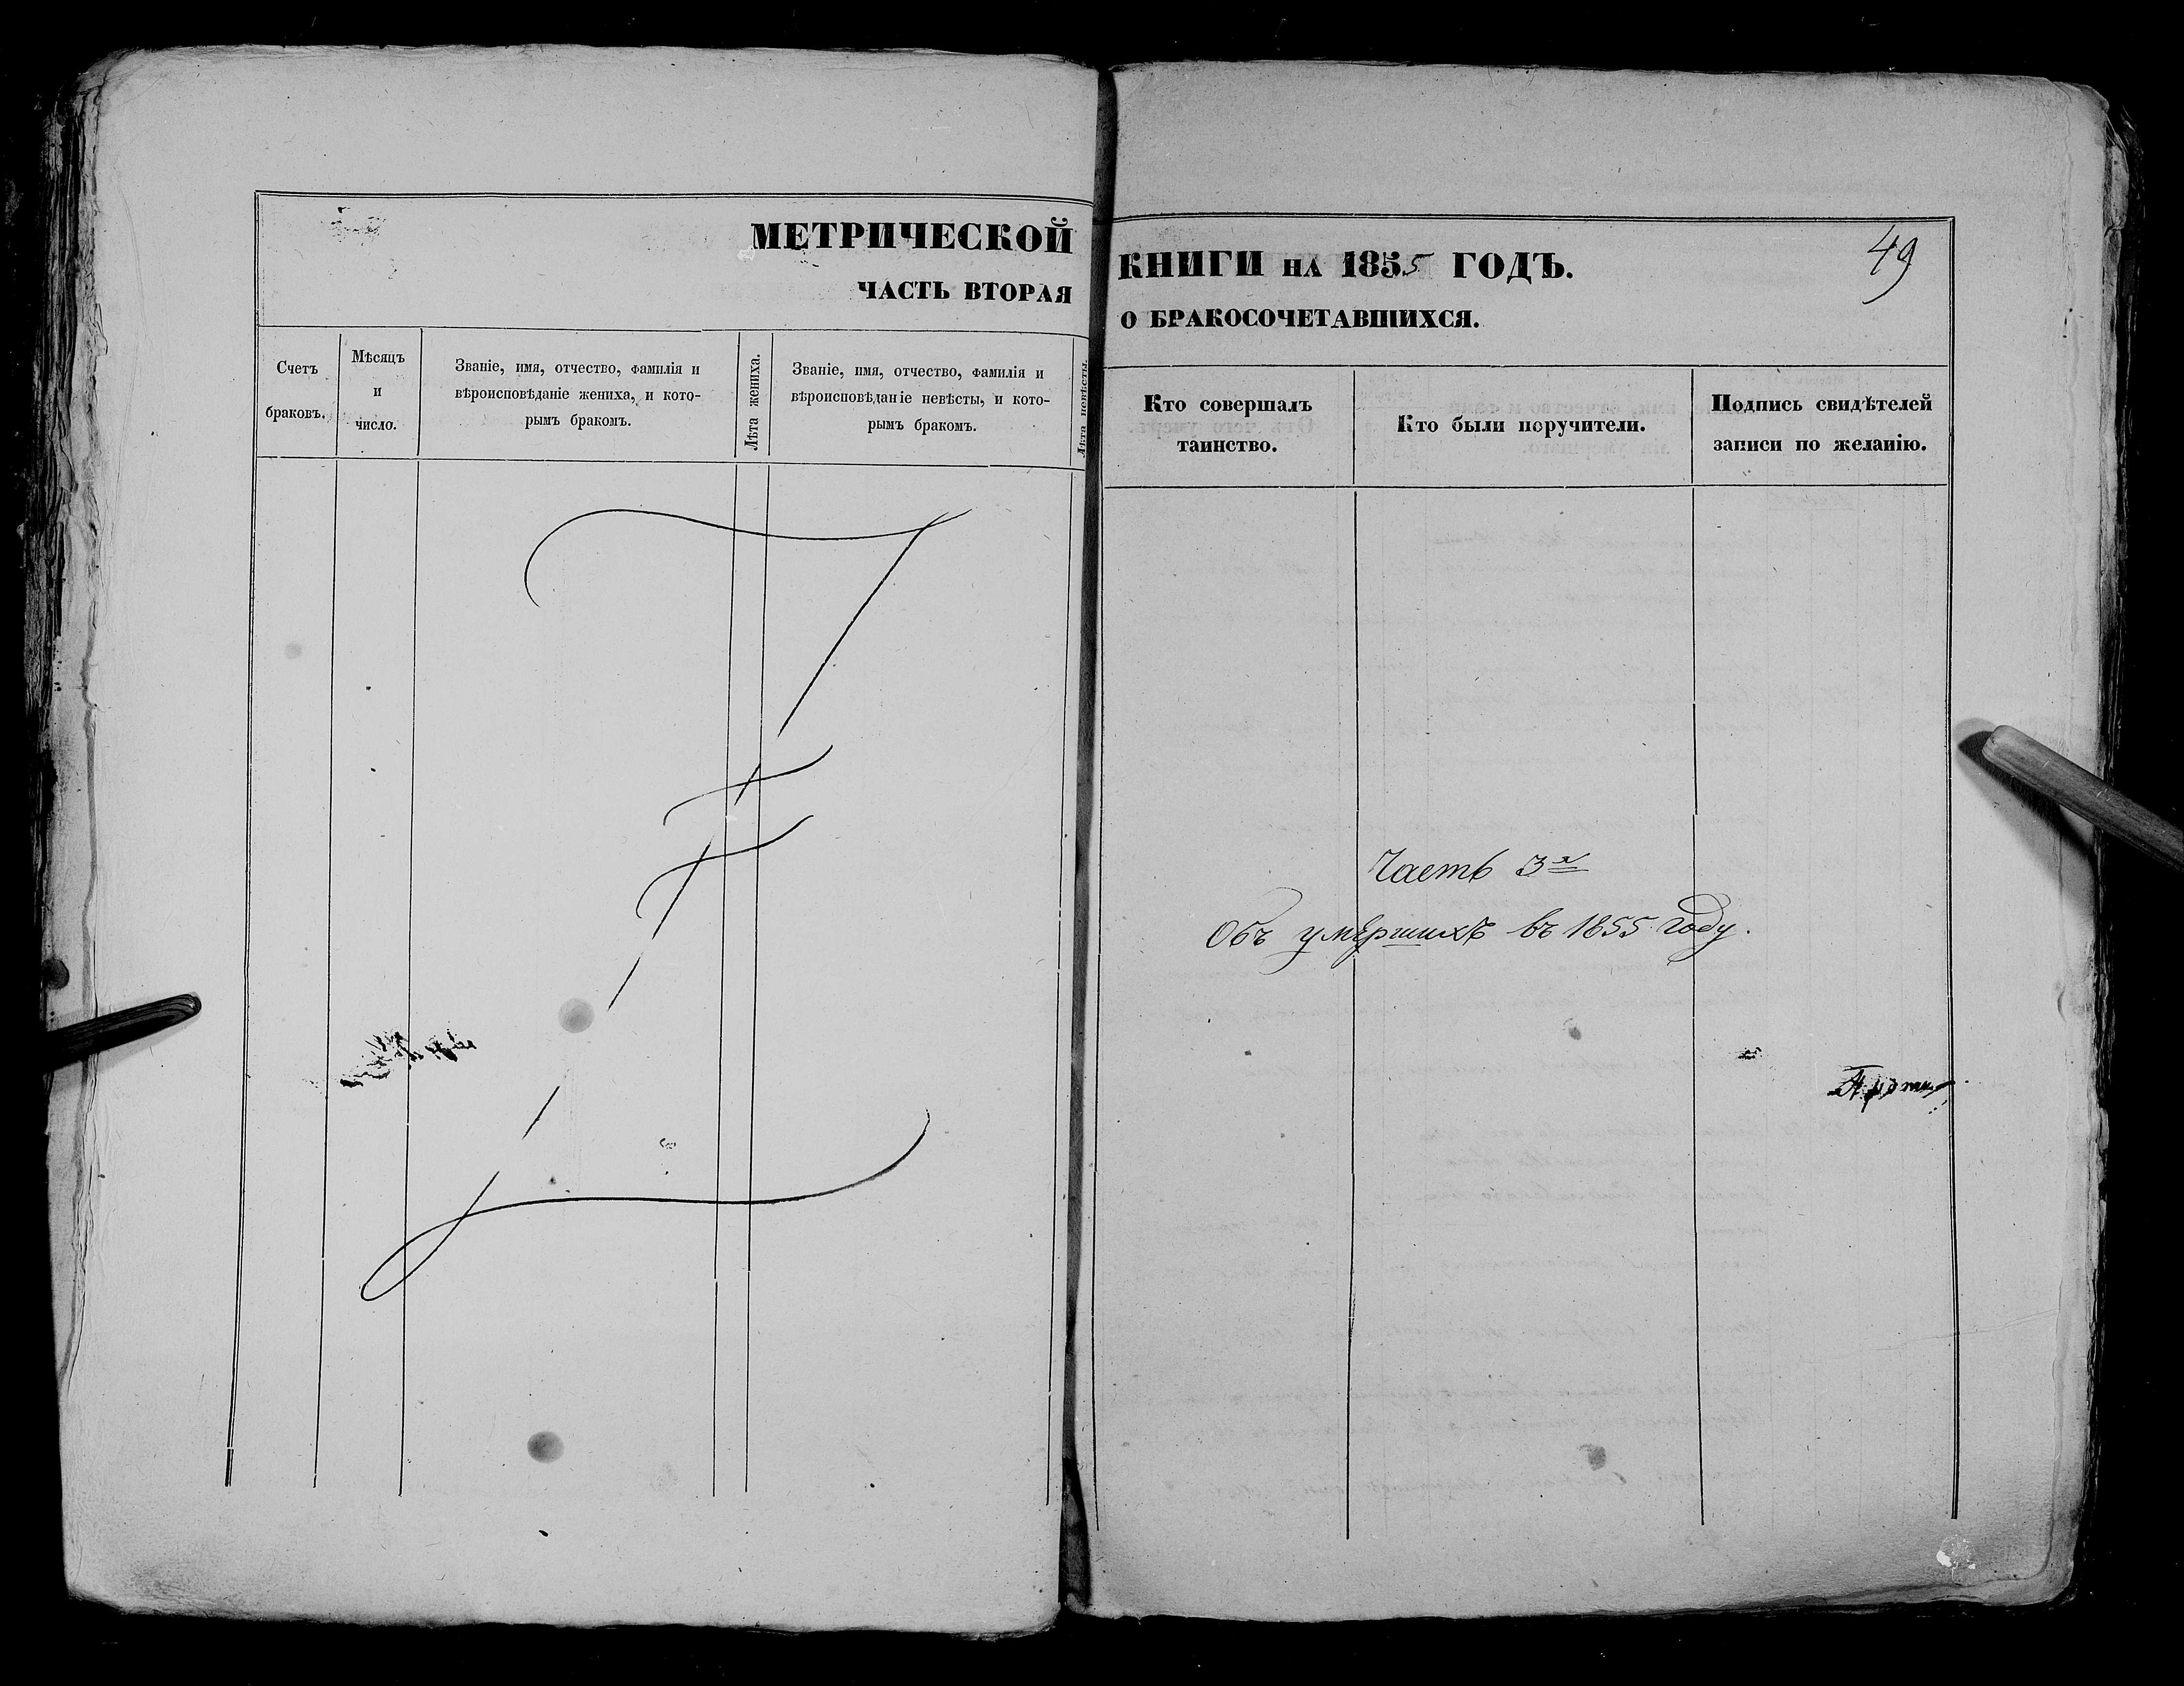 МЕТРИЧЕСКОЙ
ЧАСТЬ ВТОРАЯ
Счетъ
браковъ.
Мѣсяцъ
и
число.
Званіе, имя, отчество, фамилія и
вѣроисповѣданіе жениха, и кото-
рымъ бракомъ.
Лѣта жениха.
Званіе, имя, отчество, фамилія и
вѣроисповѣданіе невѣсты, и кото-
рымъ бракомъ.
Лѣта невѣсты.
КНИГИ НА 1855 ГОДЪ.
49
О БРАКОСОЧЕТАВШИХСЯ.
Кто совершалъ
таинство.
Кто были поручители.
Подпись свидѣтелей
записи по желанію.
Часть 3я
Объ умершихъ въ 1855 году.